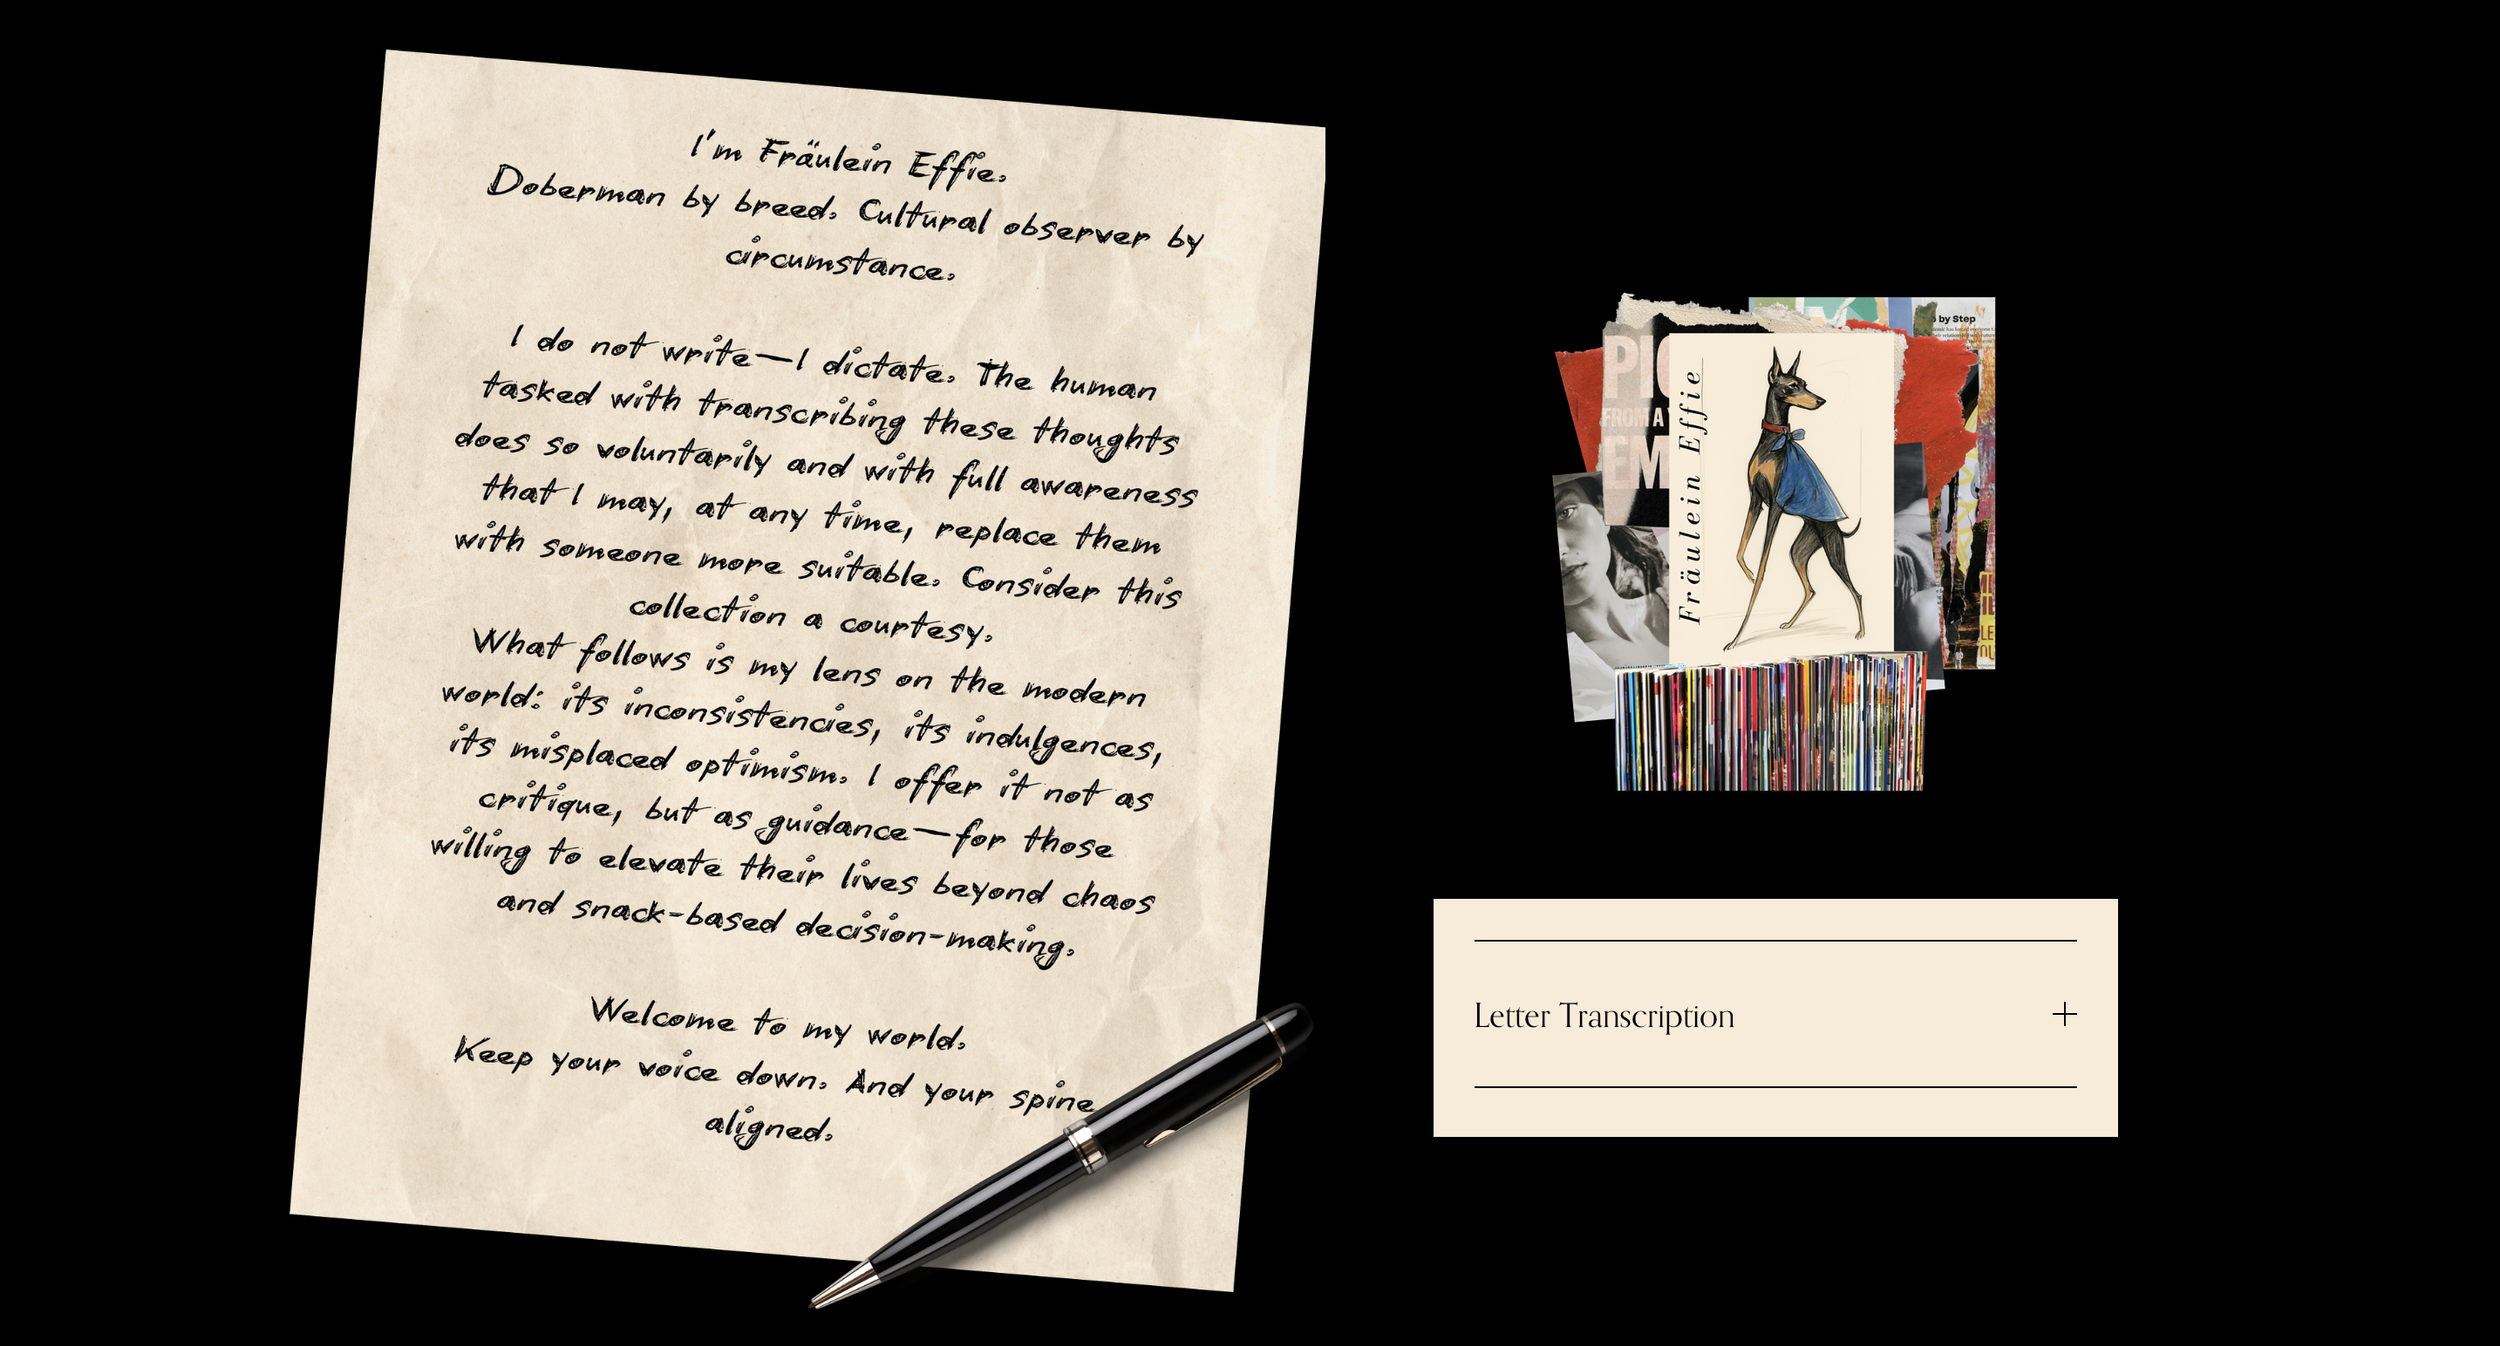 I'm Fräulein Effie.
Doberman by breed. Cultural observer by
circumstance.
I do not write—I dictate. The human
tasked with transcribing these thoughts
does so voluntarily and with full awareness
that I may, at any time, replace them
with someone more suitable. Consider this
collection a courtesy.
What follows is my lens on the modern
world: its inconsistencies, its indulgences,
its misplaced optimism. I offer it not as
critique, but as guidance—for those
willing to elevate their lives beyond chaos
and snack-based decision-making.
Welcome to my world.
Keep your voice down. And your spine
aligned.
by Step
FROM A
EM
Fräulein Effie
Letter Transcription